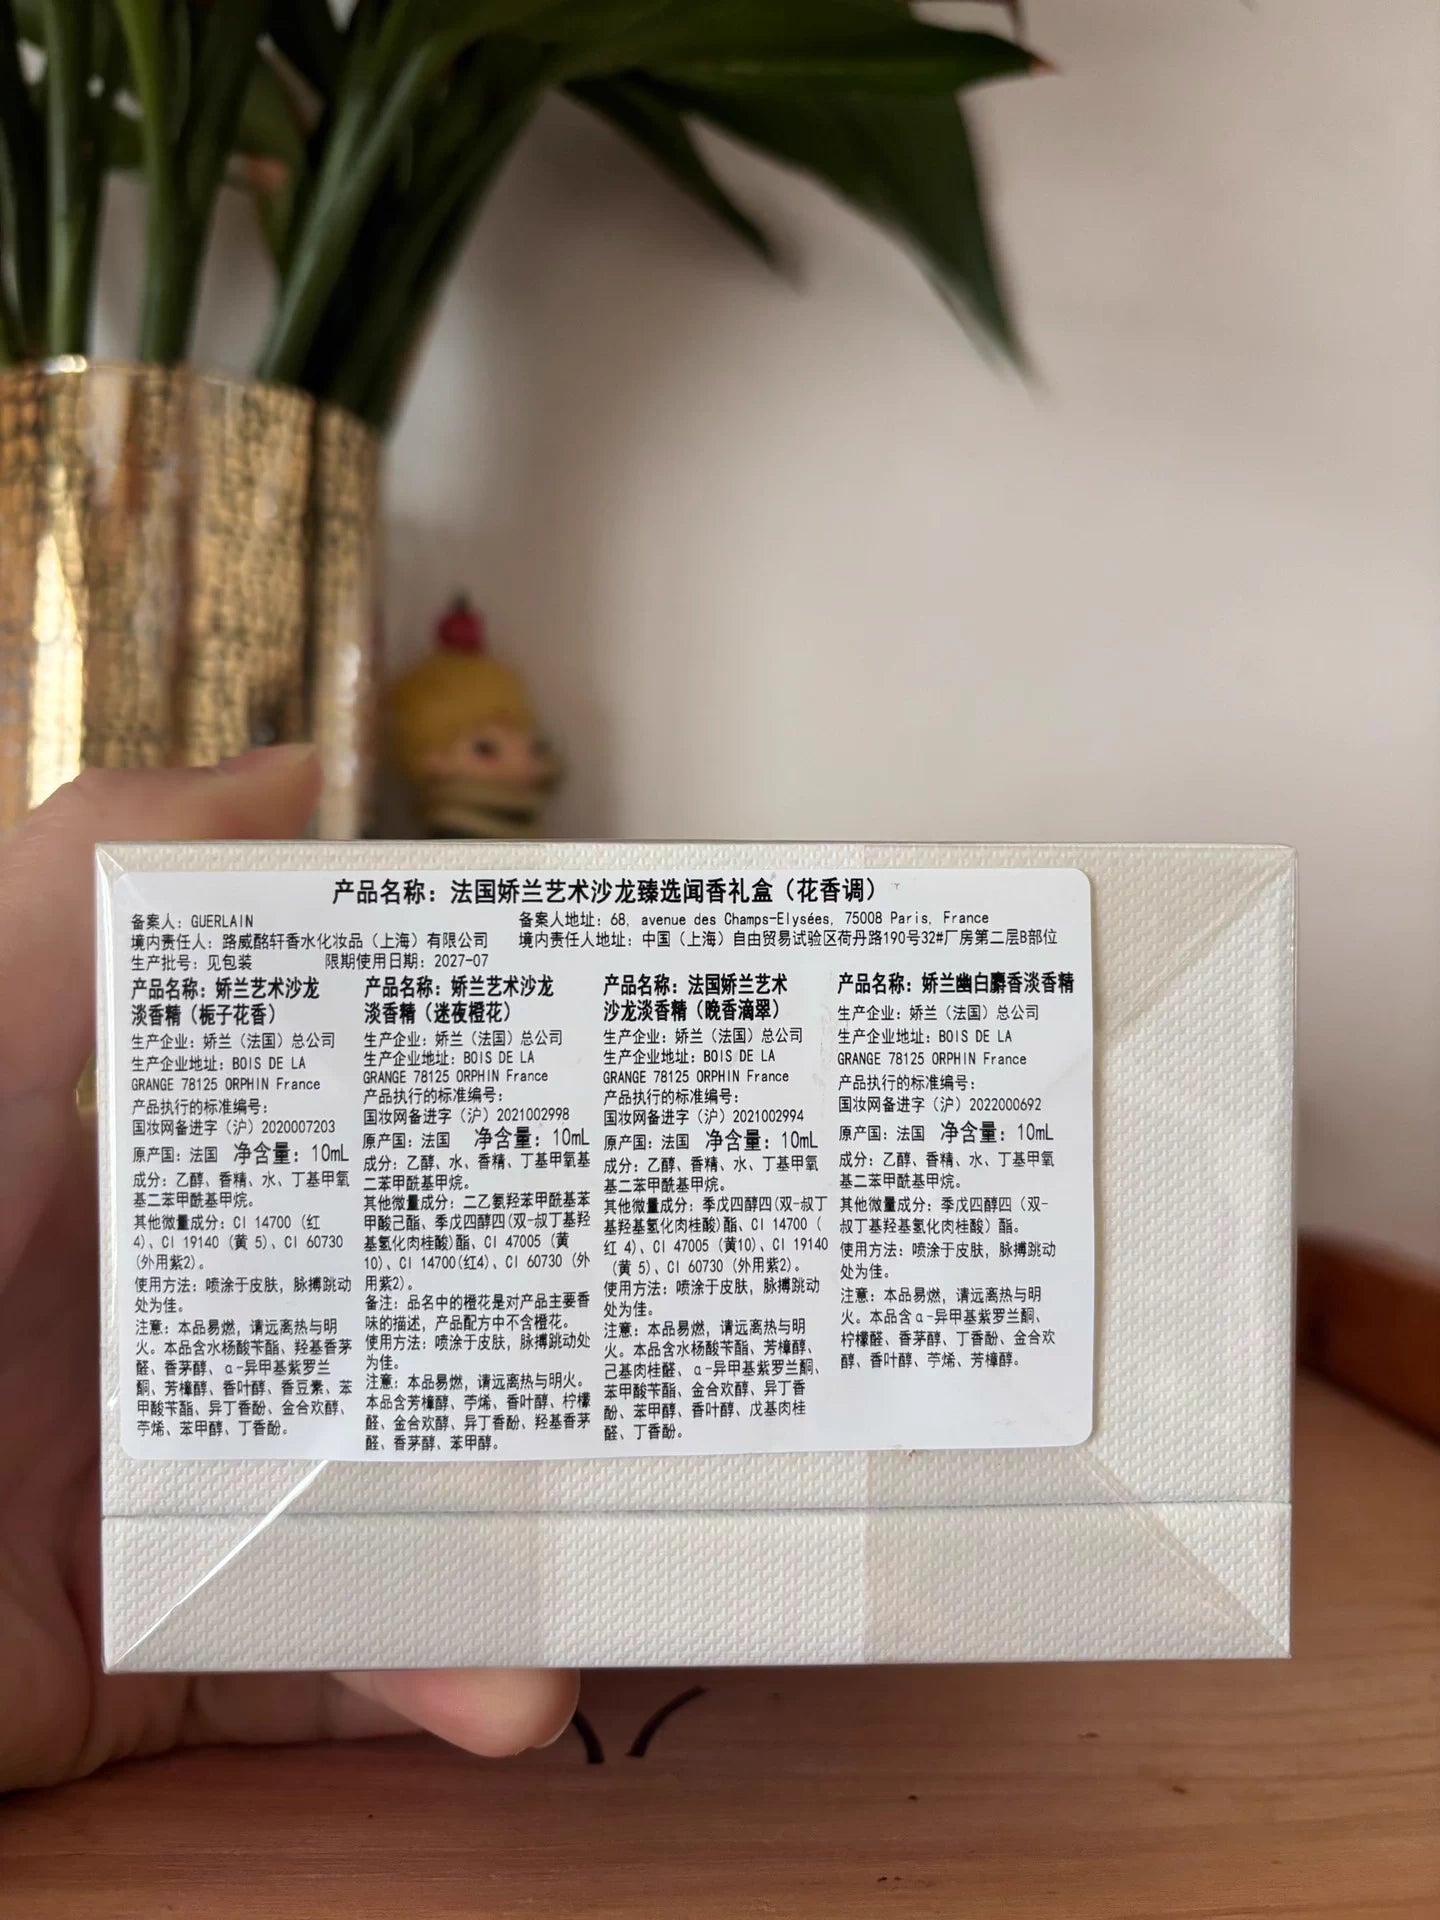 产品名称：法国娇兰艺术沙龙臻选闻香礼盒（花香调）
备案人：GUERLAIN
备案人地址：68, avenue des Champs-Elysées, 75008 Paris, France
境内责任人：路威酩轩香水化妆品（上海）有限公司
境内责任人地址：中国（上海）自由贸易试验区荷丹路190号32#厂房第二层B部位
生产批号：见包装
限期使用日期：2027-07
产品名称：娇兰艺术沙龙
淡香精（栀子花香）
生产企业：娇兰（法国）总公司
生产企业地址：BOIS DE LA
GRANGE 78125 ORPHIN France
产品执行的标准编号：
国妆网备进字（沪）2020007203
原产国：法国 净含量：10mL
成分：乙醇、香精、水、丁基甲氧
基二苯甲酰基甲烷。
其他微量成分：CI 14700（红
4）、CI 19140（黄 5）、CI 60730
（外用紫2）。
使用方法：喷涂于皮肤，脉搏跳动
处为佳。
注意：本品易燃，请远离热与明
火。本品含水杨酸苄酯、羟基香茅
醛、香茅醇、α-异甲基紫罗兰
酮、芳樟醇、香叶醇、香豆素、苯
甲酸苄酯、异丁香酚、金合欢醇、
苧烯、苯甲醇、丁香酚。
产品名称：娇兰艺术沙龙
淡香精（迷夜橙花）
生产企业：娇兰（法国）总公司
生产企业地址：BOIS DE LA
GRANGE 78125 ORPHIN France
产品执行的标准编号：
国妆网备进字（沪）2021002998
原产国：法国 净含量：10mL
成分：乙醇、水、香精、丁基甲氧基
二苯甲酰基甲烷。
其他微量成分：二乙氨羟苯甲酰基苯
甲酸己酯、季戊四醇四(双-叔丁基羟
基氢化肉桂酸)酯、CI 47005（黄
10）、CI 14700(红4)、CI 60730（外
用紫2）。
备注：品名中的橙花是对产品主要香
味的描述，产品配方中不含橙花。
使用方法：喷涂于皮肤，脉搏跳动处
为佳。
注意：本品易燃，请远离热与明火。
本品含芳樟醇、苧烯、香叶醇、柠檬
醛、金合欢醇、异丁香酚、羟基香茅
醛、香茅醇、苯甲醇。
产品名称：法国娇兰艺术
沙龙淡香精（晚香滴翠）
生产企业：娇兰（法国）总公司
生产企业地址：BOIS DE LA
GRANGE 78125 ORPHIN France
产品执行的标准编号：
国妆网备进字（沪）2021002994
原产国：法国 净含量：10mL
成分：乙醇、香精、水、丁基甲氧
基二苯甲酰基甲烷。
其他微量成分：季戊四醇四(双-叔丁
基羟基氢化肉桂酸)酯、CI 14700（
红 4）、CI 47005（黄10）、CI 19140
（黄 5）、CI 60730（外用紫2）。
使用方法：喷涂于皮肤，脉搏跳动
处为佳。
注意：本品易燃，请远离热与明
火。本品含水杨酸苄酯、芳樟醇、
己基肉桂醛、α-异甲基紫罗兰酮、
苯甲酸苄酯、金合欢醇、异丁香
酚、苯甲醇、香叶醇、戊基肉桂
醛、丁香酚。
产品名称：娇兰幽白麝香淡香精
生产企业：娇兰（法国）总公司
生产企业地址：BOIS DE LA
GRANGE 78125 ORPHIN France
产品执行的标准编号：
国妆网备进字（沪）2022000692
原产国：法国 净含量：10mL
成分：乙醇、香精、水、丁基甲氧
基二苯甲酰基甲烷。
其他微量成分：季戊四醇四（双-
叔丁基羟基氢化肉桂酸）酯。
使用方法：喷涂于皮肤，脉搏跳动
处为佳。
注意：本品易燃，请远离热与明
火。本品含α-异甲基紫罗兰酮、
柠檬醛、香茅醇、丁香酚、金合欢
醇、香叶醇、苧烯、芳樟醇。